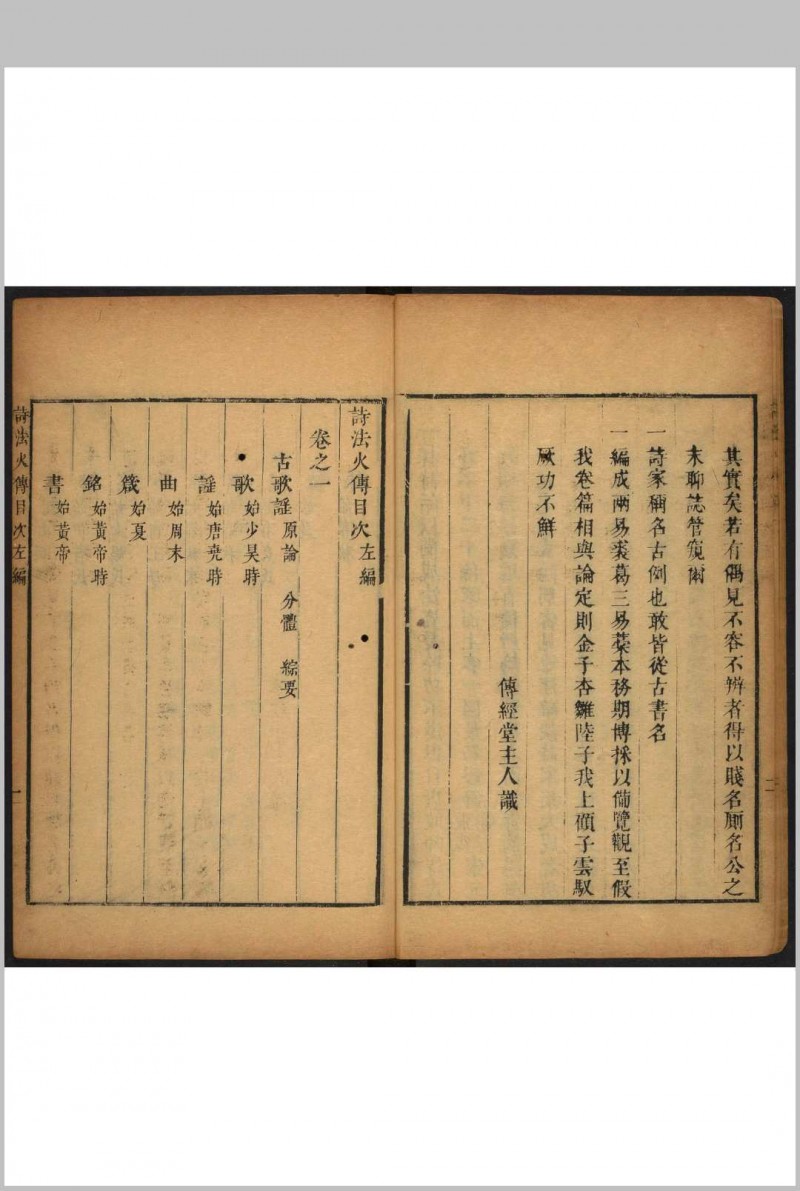 其實矣若有偶見不容不辨者得以賤名厠名公之
末聊誌管窺爾
一詩家稱名古例也敢皆從古書名
一編成兩易裘葛三易藁本務期博採以備覽觀至假
我卷篇相與論定則金子杏雛陸子我上碩子雲馭
厥功不鮮
傳經堂主人識
詩法火傳目次左編
卷之一
古歌謠原論 分體 綜要
歌始少昊時
謠始唐堯時
曲始周末
箴始夏
銘始黃帝時
書始黃帝
詩法火傳目次左編 一